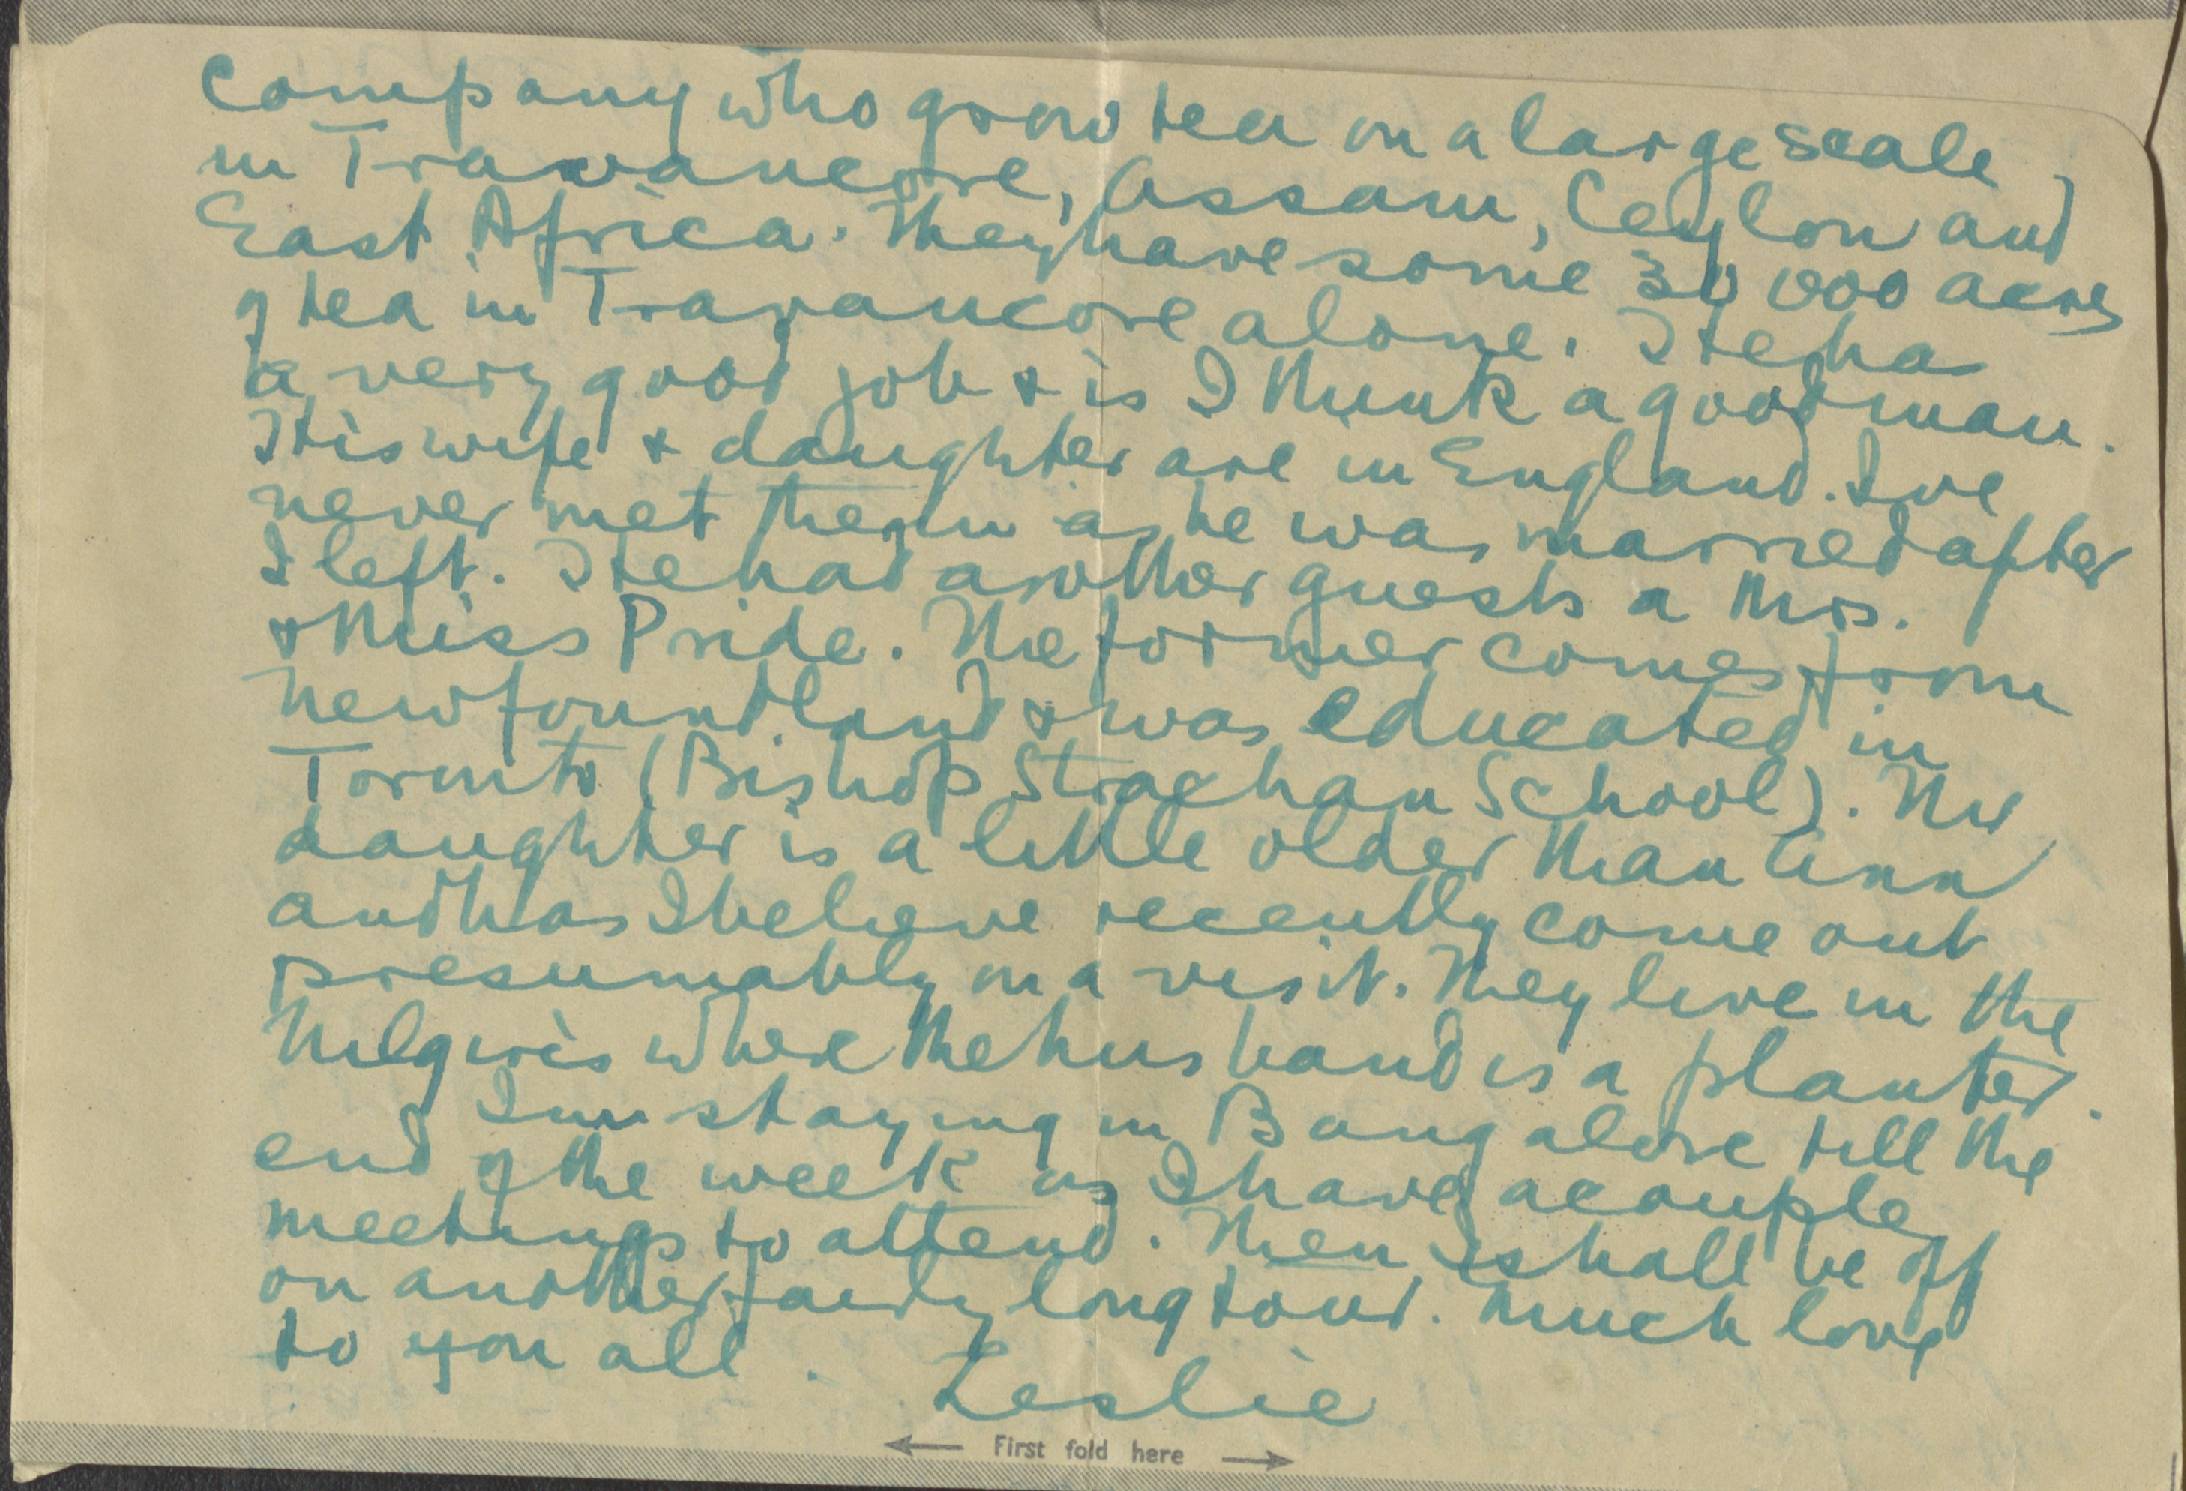 Company who grow tea on a large scale
in Travancore, Assam, Ceylon and
East Africa. They have some 30 000 acres
of tea in Travancore alone. He has
a very good job & is I think a good man.
His wife & daughter are in England. Ive
never met them as he was married after
I left. He had as other guests a Mrs.
& Miss Pride. The former comes from
Newfoundland & was educated in
Toronto (Bishop Strachan School). The
daughter is a little older than Ann
and has I believe recently come out
presumably on a visit. They live in the
Nilgiris where the husband is a planter.
I'm staying in Bangalore till the
end of the week as I have a couple
meetings to attend. Then I shall be off
on another fairly long tour. Much love
to you all.
Leslie
First fold here